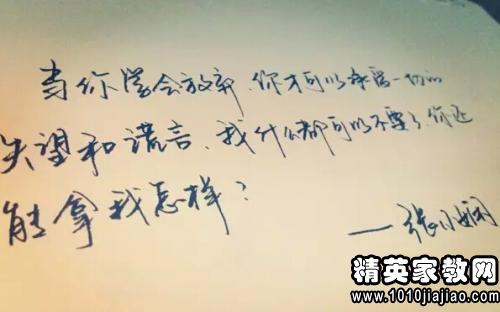 当你学会放弃、你才可以承受一切的
失望和谎言、我什么都可以不要了、你还
能拿我怎样？
—张小娴
精英家教网
www.1010jiajiao.com